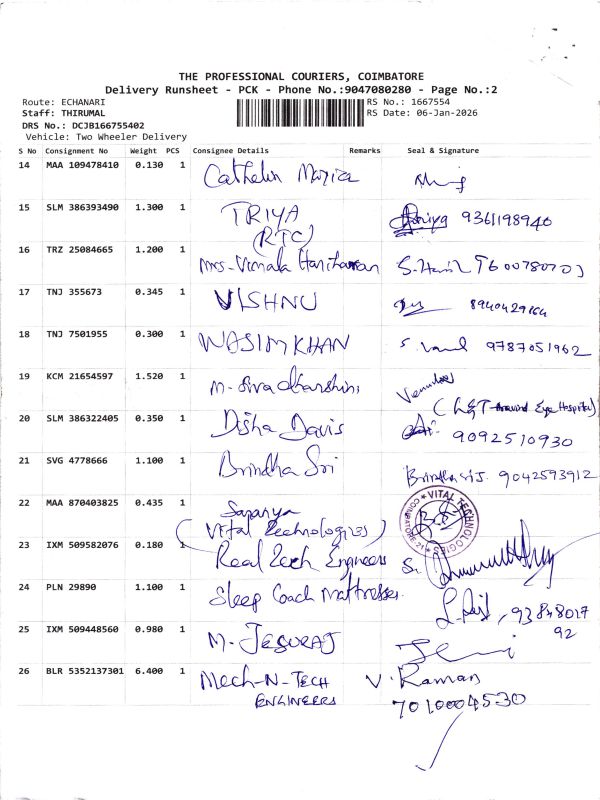 THE PROFESSIONAL COURIERS, COIMBATORE
Delivery Runsheet - PCK - Phone No.:9047080280 - Page No.:2
Route: ECHANARI RS No.: 1667554
Staff: THIRUMAL RS Date: 06-Jan-2026
DRS No.: DCJB166755402
Vehicle: Two Wheeler Delivery
S No Consignment No Weight PCS Consignee Details Remarks Seal & Signature
14 MAA 109478410 0.130 1 Cathelin Maria
15 SLM 386393490 1.300 1 TRIYA 9361198940
(RTC)
16 TRZ 25084665 1.200 1 Mrs-Vimala Hariharan
17 TNJ 355673 0.345 1 VISHNU 8940429164
18 TNJ 7501955 0.300 1 WASIM KHAN 9787051962
19 KCM 21654597 1.520 1 M. Sivadharshini
(L&T Aravind Eye Hospital)
20 SLM 386322405 0.350 1 Disha Davis 9092510930
21 SVG 4778666 1.100 1 Brindha Sri Brindha Sri S. 9042593912
22 MAA 870403825 0.435 1 VITAL TECHNOLOGIES COIMBATORE 21
(Vital Technologies)
23 IXM 509582076 0.180 1 Real Tech Engineers
24 PLN 29890 1.100 1 Sleep Coach Mattresses 93848017
92
25 IXM 509448560 0.980 1 M. JESURAJ
26 BLR 5352137301 6.400 1 Mech-N-Tech V. Raman
ENGINEERS 7010004530